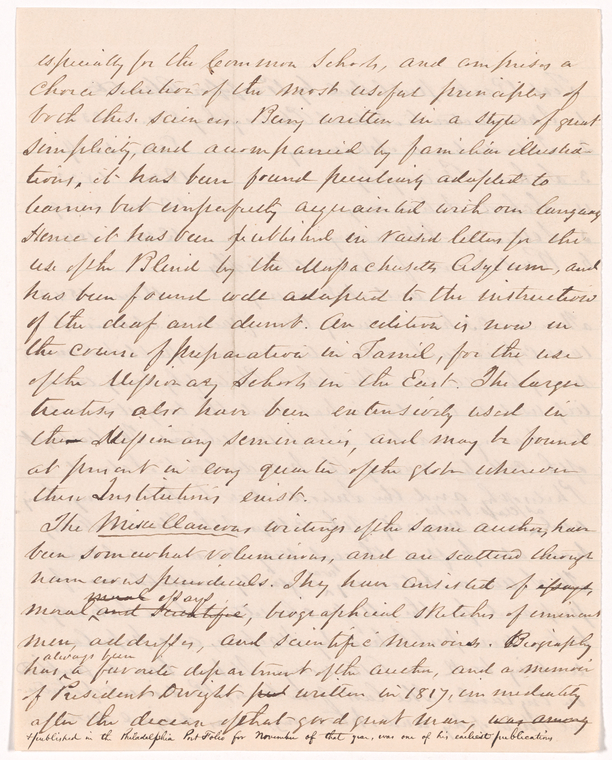 especially for the Common Schools, and comprises a
choice selection of the most useful principles of
both these sciences. Being written in a style of great
simplicity, and accompanied by familiar illustra-
tions, it has been found peculiarly adapted to
learners but imperfectly acquainted with our language
Hence it has been published in raised letters for the
use of the Blind by the Massachusetts Asylum, and
has been found well adapted to the instruction
of the deaf and dumb. An edition is now in
the course of preparation in Tamil, for the use
of the Missionary Schools in the East. The larger
treatises also have been extensively used in
the Missionary seminaries, and may be found
at present in every quarter of the globe wherever
these Institutions exist.
The Miscellaneous writings of the same author, have
been somewhat voluminous, and are scattered through
numerous periodicals. They have consisted of essays,
moral essays,
moral and scientific, biographical sketches of eminent
men, addresses, and scientific memoirs. Biography
always been
has a favorite department of the author, and a memoir
of President Dwight written in 1817, immediately
after the decease of that good great man, was among
+published in the Philadelphia Port Folio for November of that year, was one of his earliest publications